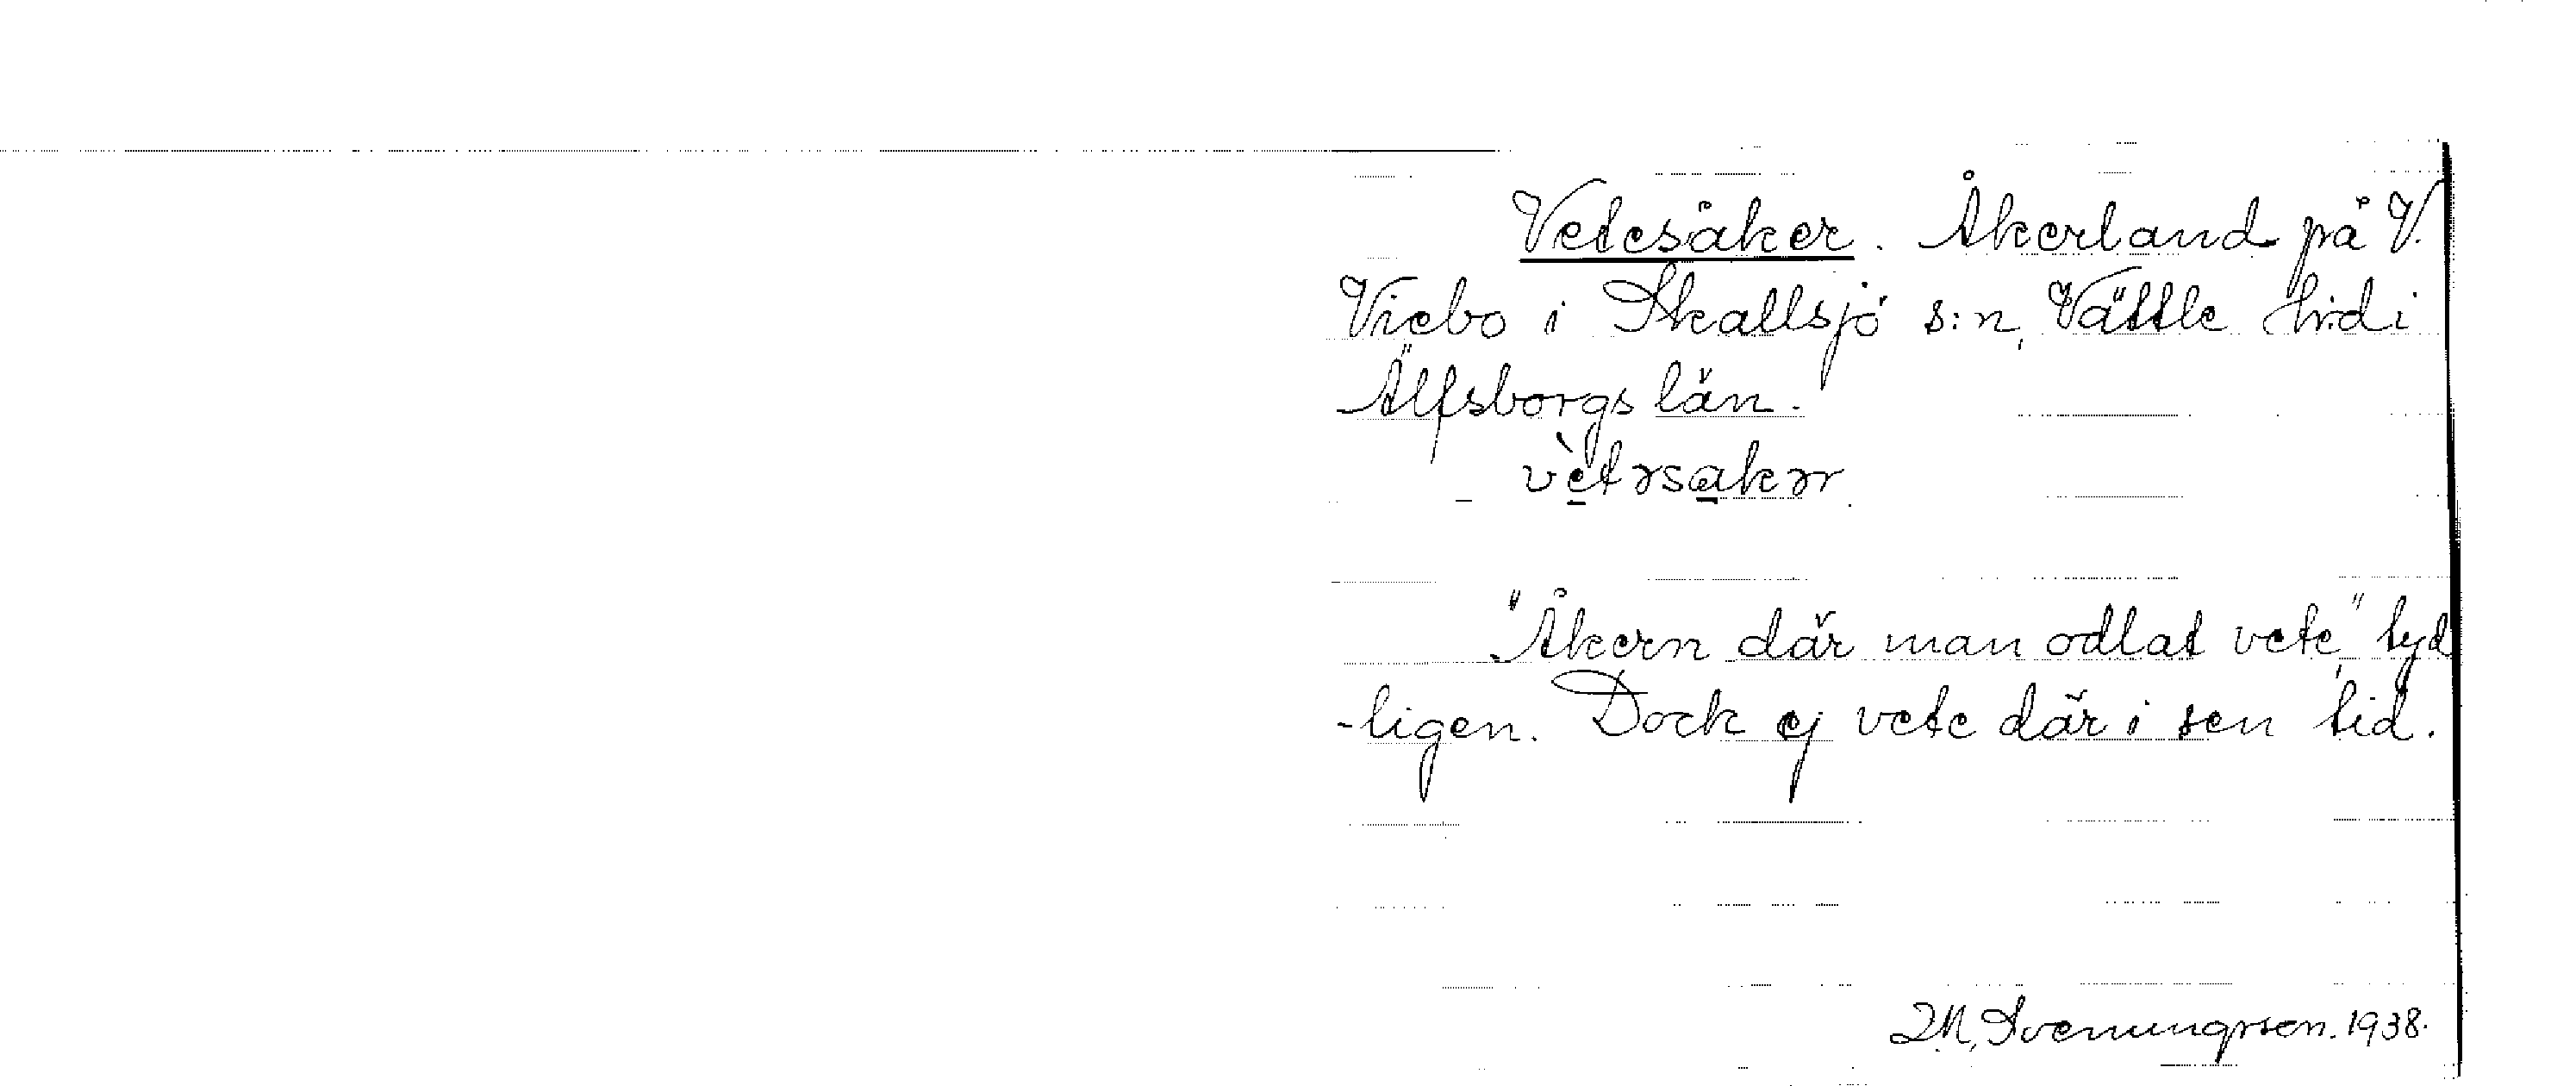 Vetesåker. Åkerland på V.
Viebo i Skallsjö s:n, Vättle h:d i
Älfsborgs län.
vètəsakər
"Åkern där man odlat vete", tyd
-ligen. Dock ej vete där i sen tid.
Svenungsson. 1938.